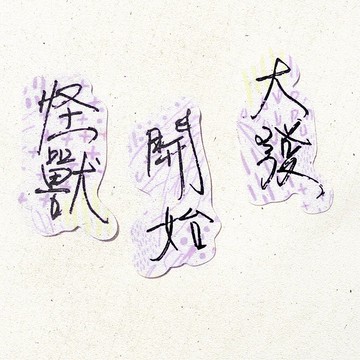 大發
開始
怪獸